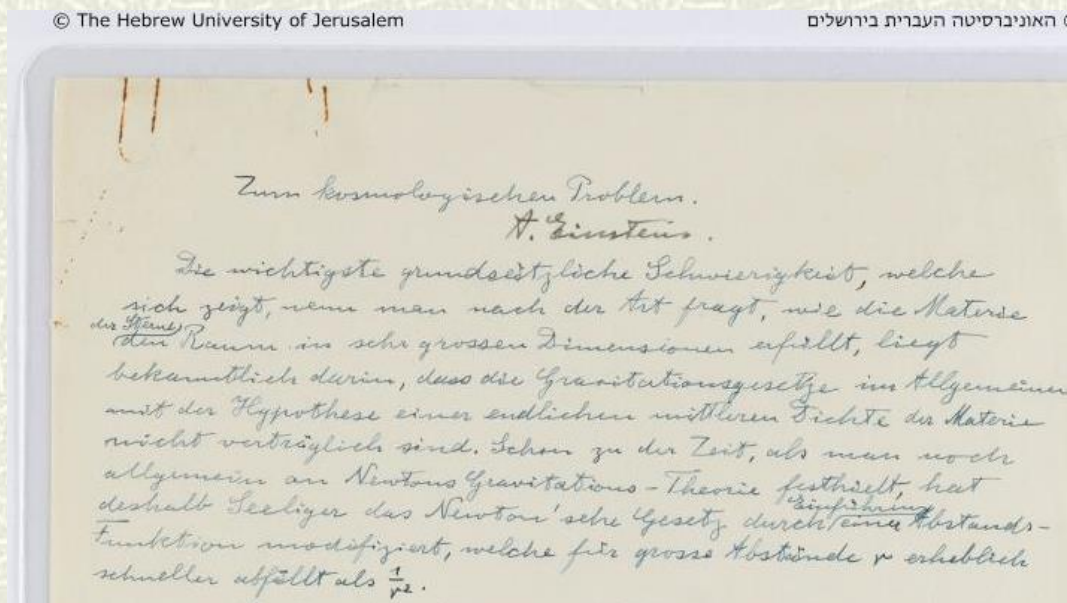 © The Hebrew University of Jerusalem האוניברסיטה העברית בירושלים
Zum kosmologischen Problem.
A. Einstein.
Die wichtigste grundsätzliche Schwierigkeit, welche
sich zeigt, wenn man nach der Art fragt, wie die Materie
der Sterne
den Raum in sehr grossen Dimensionen erfüllt, liegt
bekanntlich darin, dass die Gravitationsgesetze im Allgemeinen
mit der Hypothese einer endlichen mittleren Dichte der Materie
nicht verträglich sind. Schon zu der Zeit, als man noch
allgemein an Newtons Gravitations-Theorie festhielt, hat
Einführung
deshalb Seeliger das Newton'sche Gesetz durch einer Abstands-
Funktion modifiziert, welche für grosse Abstände r erheblich
schneller abfällt als 1/r².